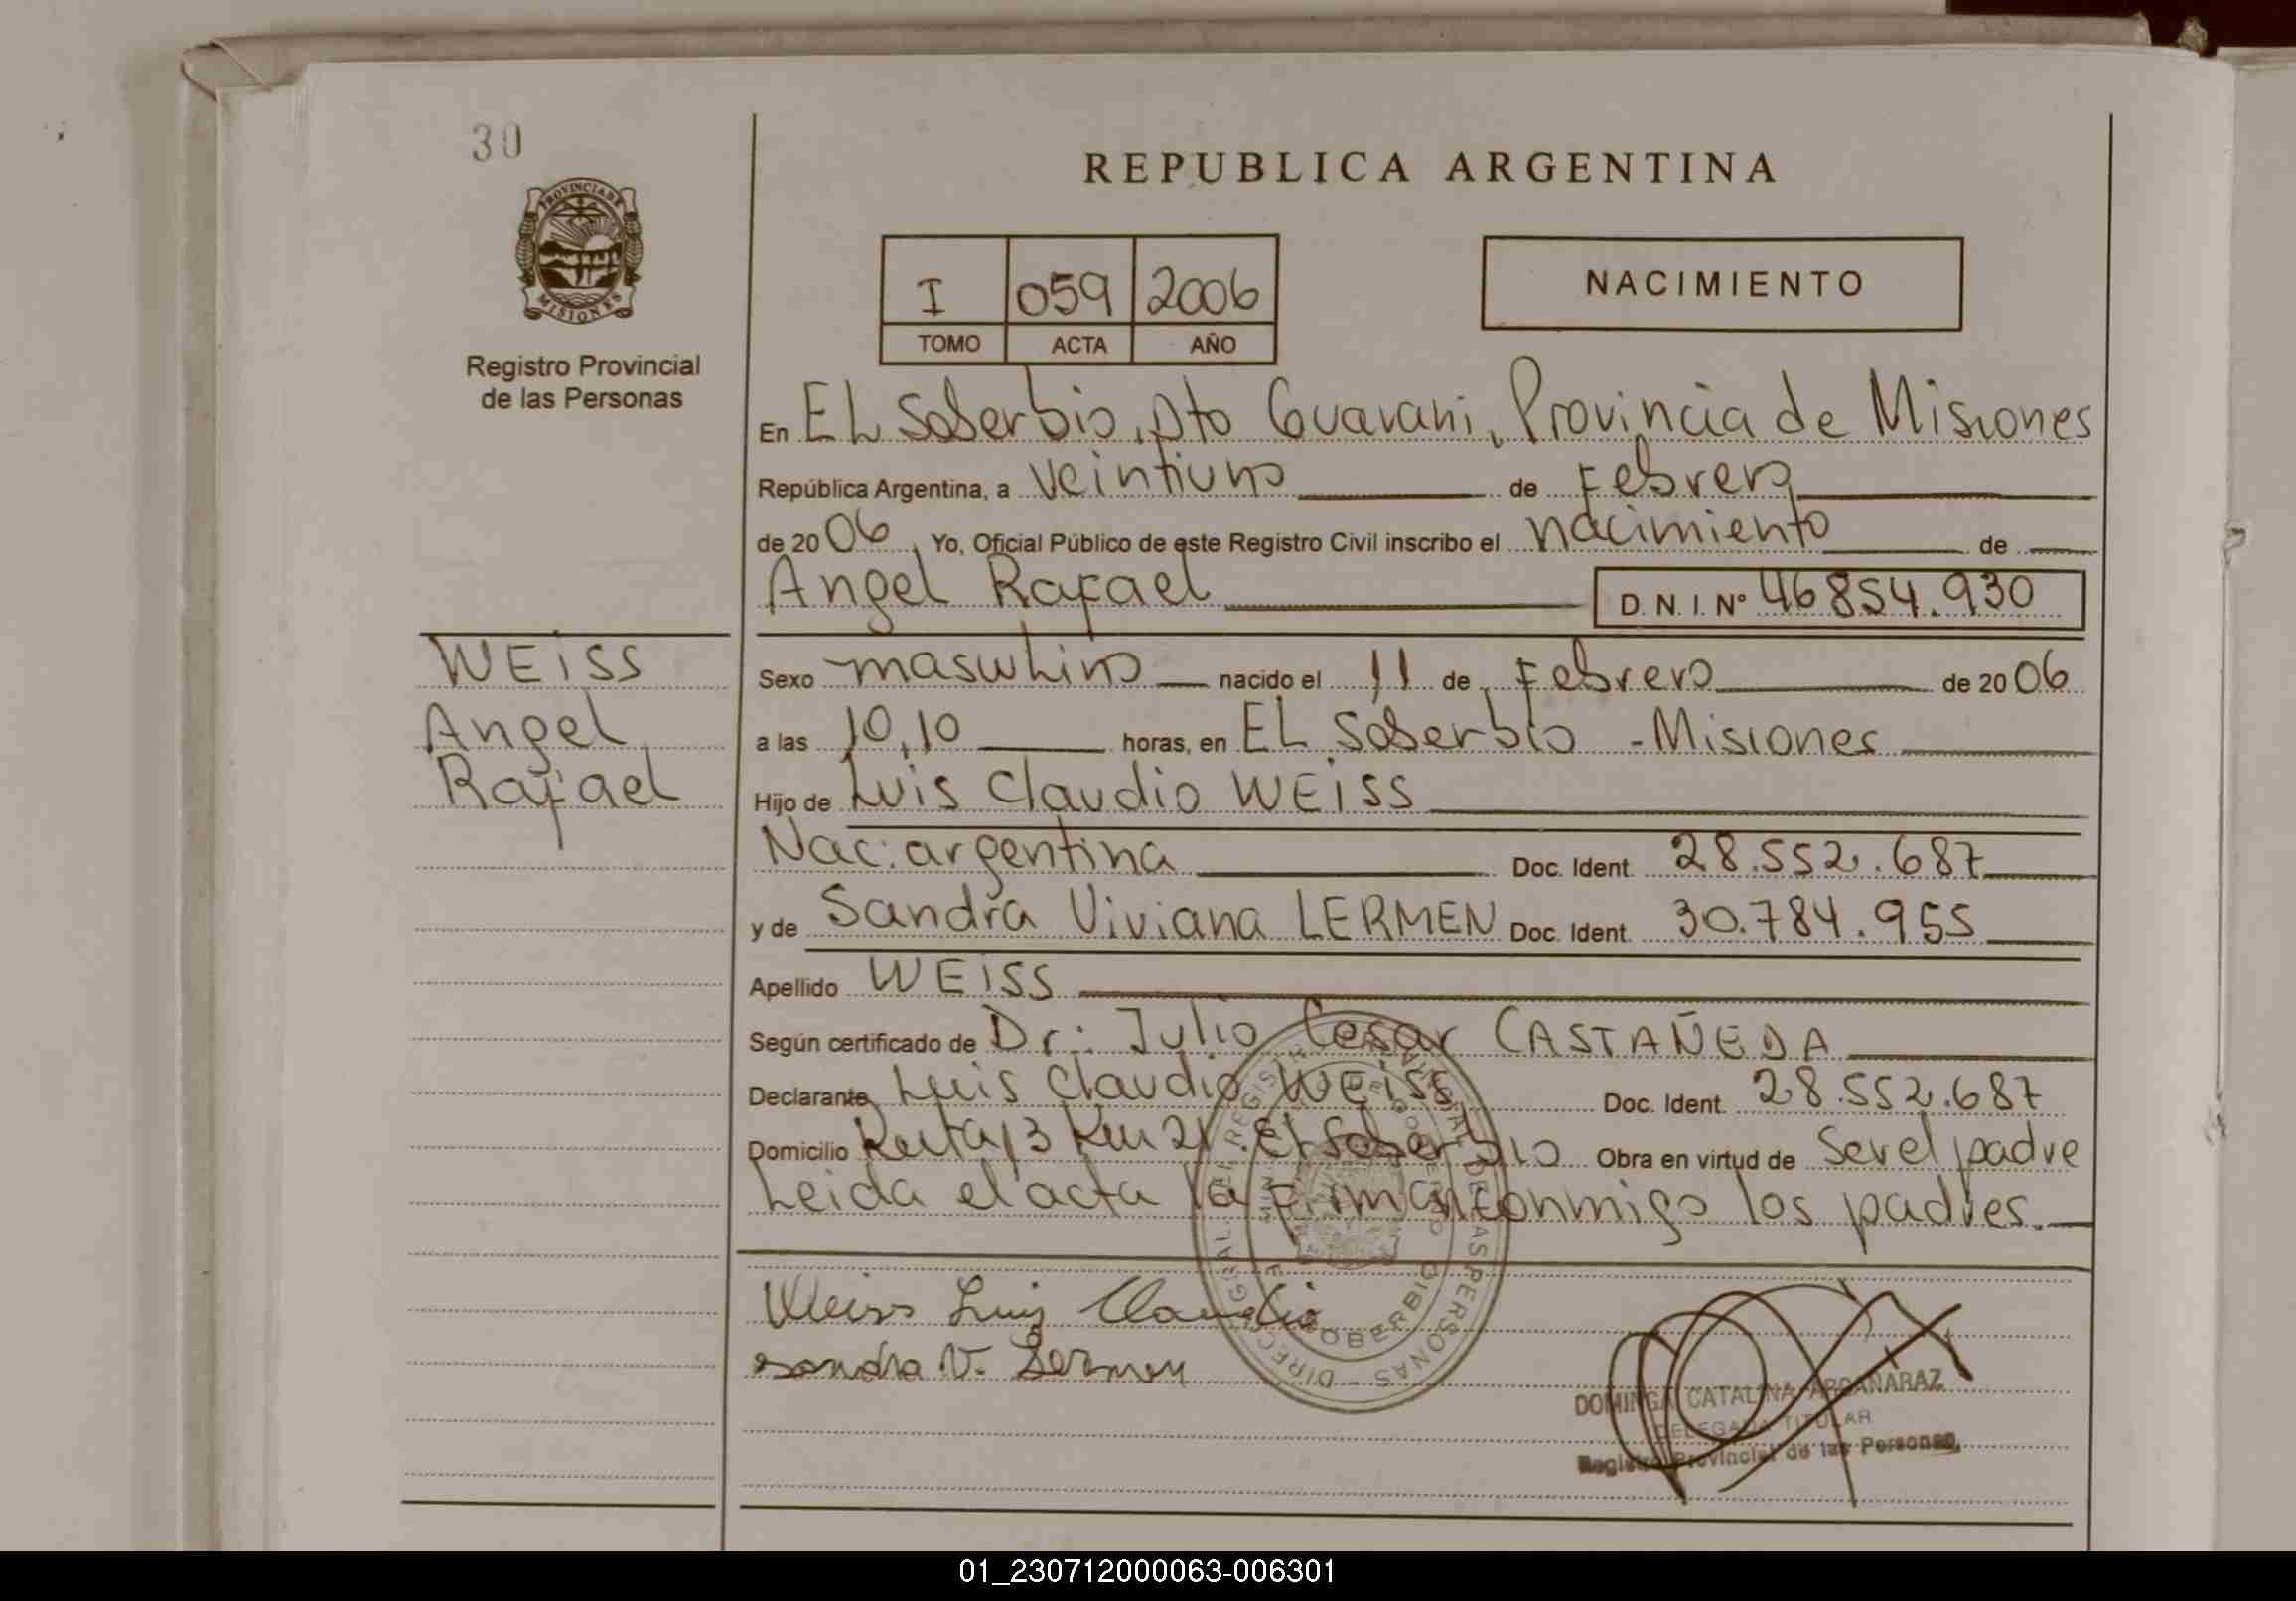 30
PROVINCIA DE
MISIONES
Registro Provincial
de las Personas
REPUBLICA ARGENTINA
I 059 2006
TOMO ACTA AÑO
NACIMIENTO
En EL Soberbio, Dto Guarani, Provincia de Misiones
República Argentina, a veintiuno de Febrero
de 20 06, Yo, Oficial Público de este Registro Civil inscribo el nacimiento de
Angel Rafael D.N.I. Nº 46854.930
WEiSS
Angel
Rafael
Sexo masculino nacido el 11 de Febrero de 20 06
a las 10,10 horas, en EL Soberbio - Misiones
Hijo de Luis Claudio WEiSS
Nac: argentina Doc. Ident. 28.552.687
y de Sandra Viviana LERMEN Doc. Ident. 30.784.955
Apellido WEiSS
Según certificado de Dr: Julio Cesar CASTAÑEDA
Declarante Luis Claudio WEiSS Doc. Ident. 28.552.687
Domicilio Ruta 13 Km 21 El Soberbio Obra en virtud de Ser el padre
Leida el acta la firman conmigo los padres.
Weiss Luis Claudio
Sandra V. Lermen
SOBERBIO
DE LAS PERSONAS
DOMINGA CATALINA ARGAÑARAZ
DELEGADA TITULAR
Registro Provincial de las Personas
01_230712000063-006301